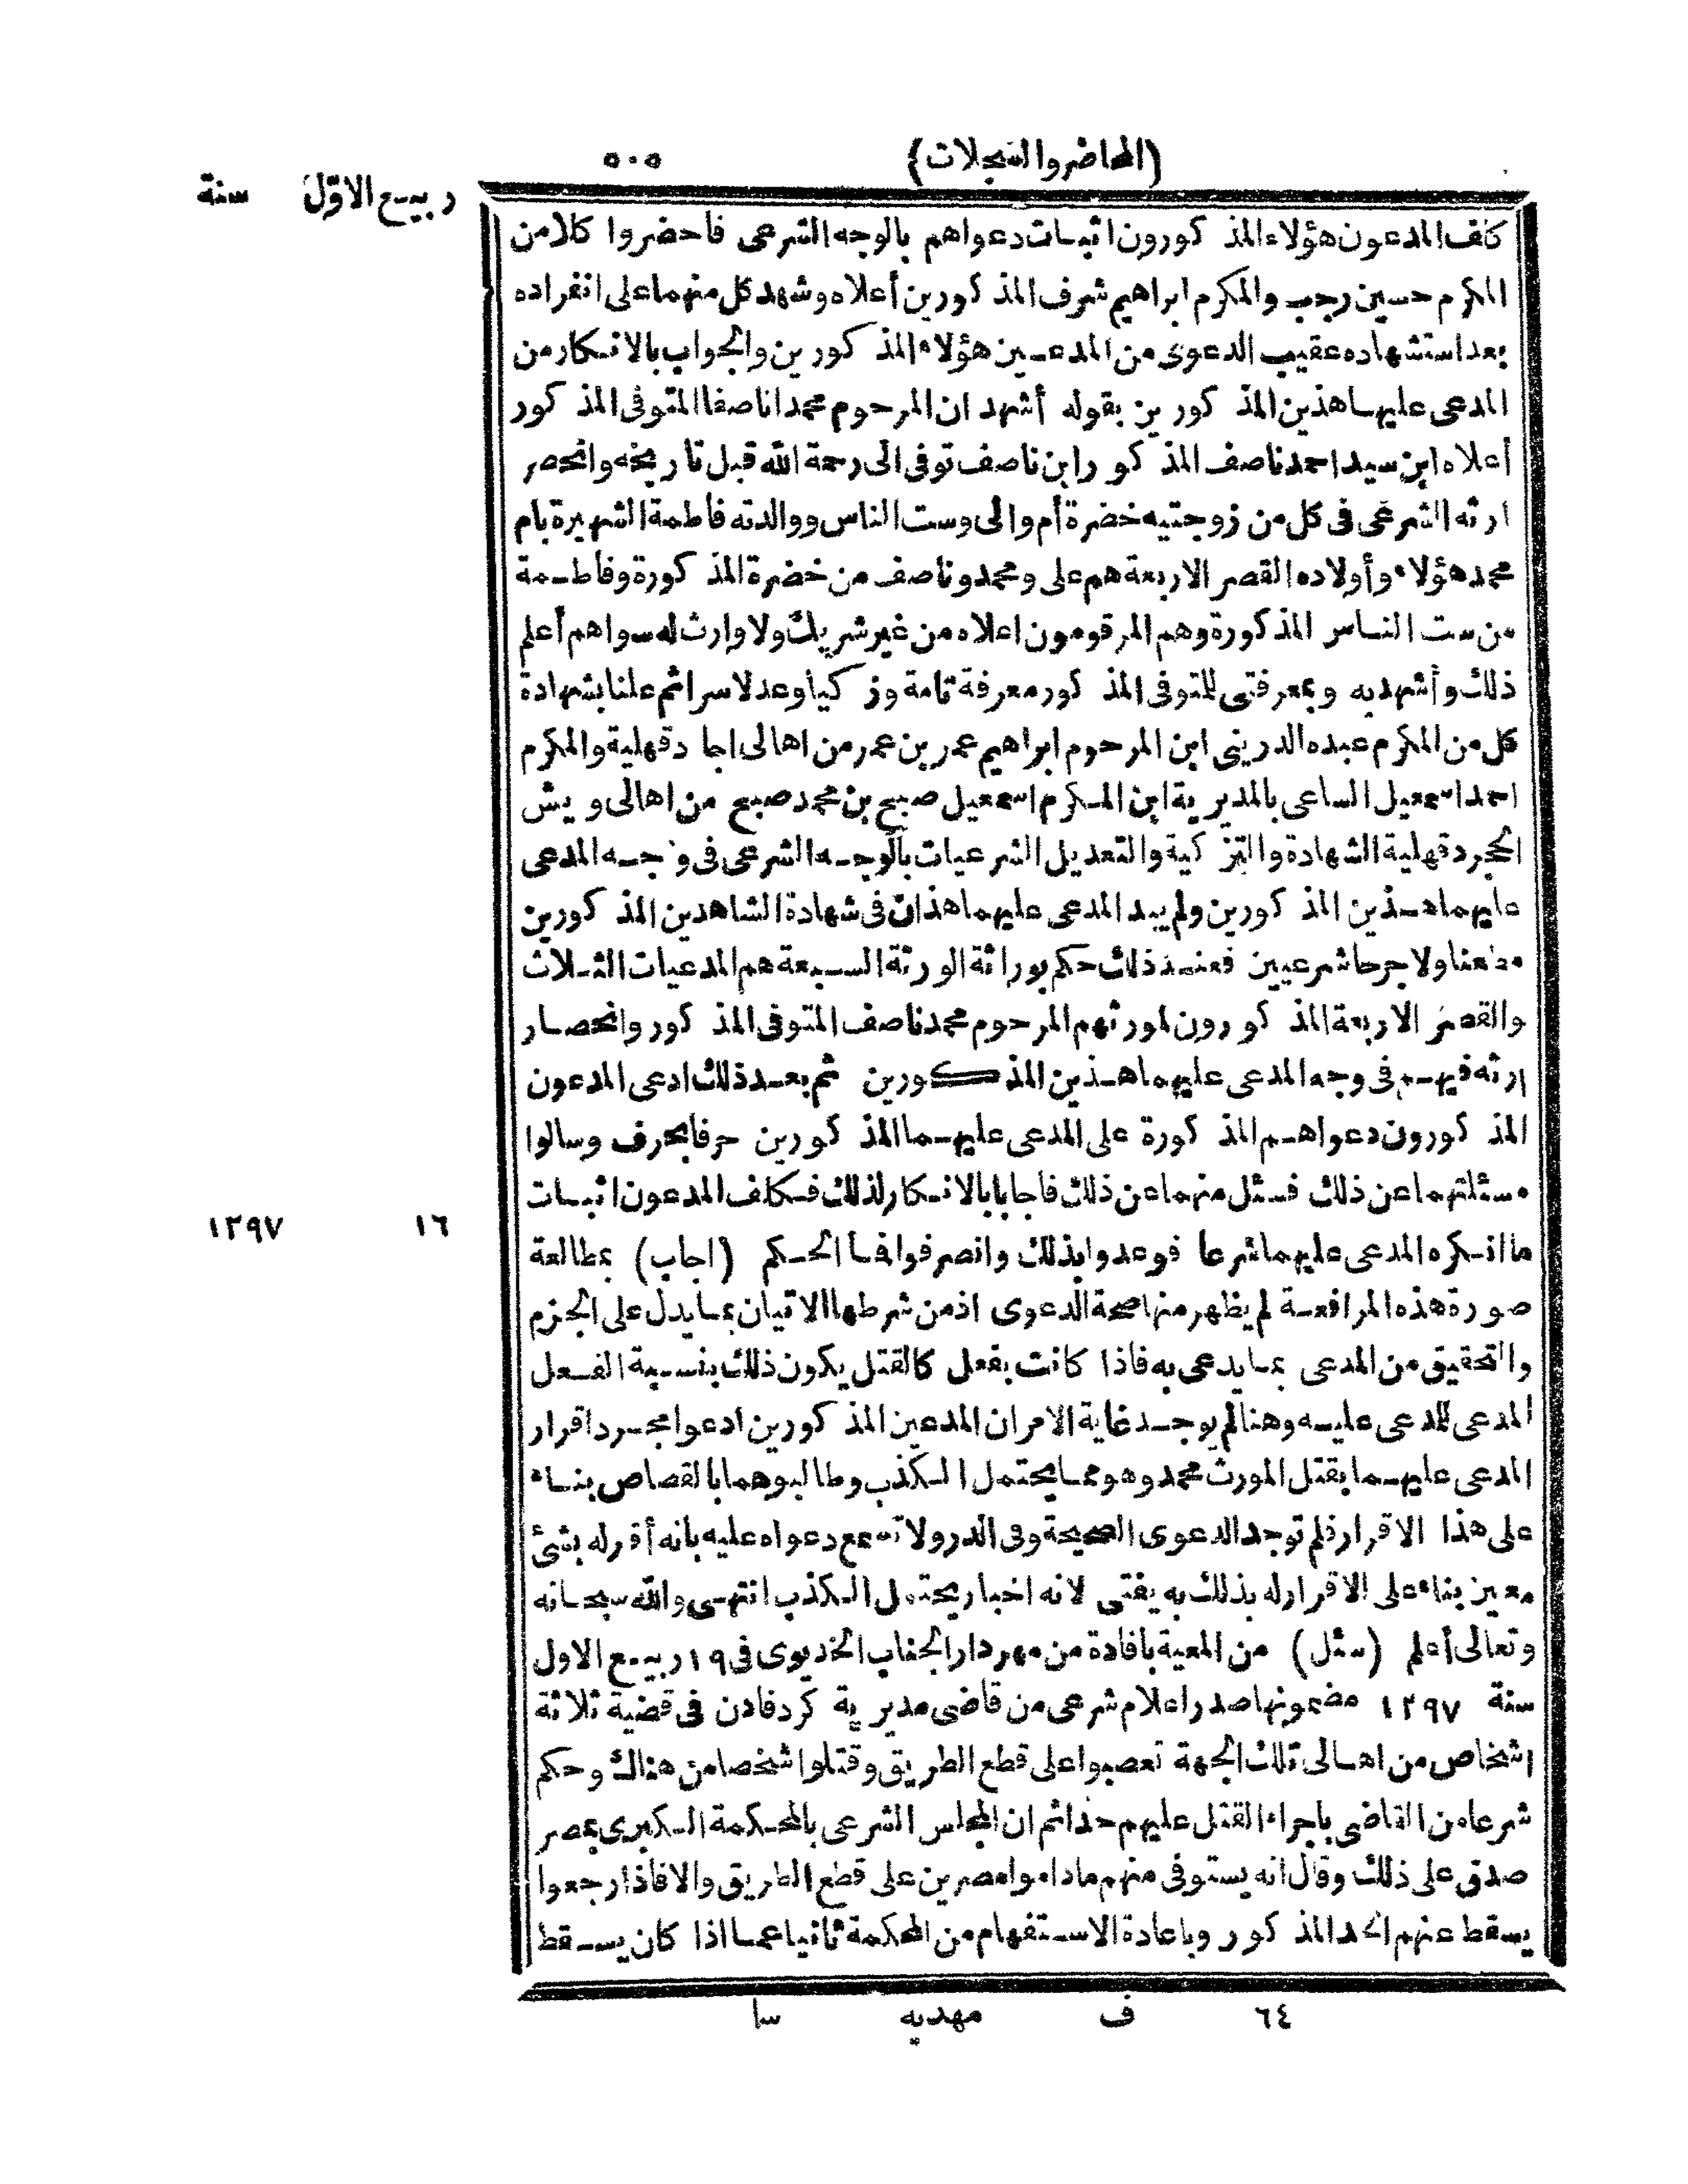 (المحاضر والسجلات) ٥٠٥
ربيع الاوّل سنة
كلف المدعون هؤلاء المذكورون اثبات دعواهم بالوجه الشرعى فأحضروا كلا من
المكرم حسين رجب والمكرم ابراهيم شرف المذكورين أعلاه وشهد كل منهما على انفراده
بعد استشهاده عقيب الدعوى من المدعين هؤلاء المذكورين والجواب بالانكار من
المدعى عليهما هذين المذكورين بقوله أشهد ان المرحوم محمدا ناصفا المتوفى المذكور
أعلاه ابن سيد احمد ناصف المذكور ابن ناصف توفى الى رحمة الله قبل تاريخه وانحصر
ارثه الشرعى فى كل من زوجتيه خضرة أم والى وست الناس ووالدته فاطمة الشهيرة بام
محمد هؤلاء وأولاده القصر الاربعة هم على ومحمد وناصف من خضرة المذكورة وفاطمة
من ست الناس المذكورة وهم المرقومون اعلاه من غير شريك ولا وارث له سواهم أعلم
ذلك وأشهد به وبمعرفتى للمتوفى المذكور معرفة تامة وزكيا وعدلا سرا ثم علنا بشهادة
كل من المكرم عبده الدرينى ابن المرحوم ابراهيم عمر بن عمر من اهالى اجا دقهلية والمكرم
احمد اسمعيل الساعى بالمديرية ابن المكرم اسمعيل صبيح بن محمد صبيح من اهالى ويش
الحجر دقهلية الشهادة والتزكية والتعديل الشرعيات بالوجه الشرعى فى وجه المدعى
عليهما هذين المذكورين ولم يبد المدعى عليهما هذان فى شهادة الشاهدين المذكورين
مطعنا ولا جرحا شرعيين فعند ذلك حكم بوراثة الورثة السبعة هم المدعيات الثلاث
والقصر الاربعة المذكورون لمورثهم المرحوم محمد ناصف المتوفى المذكور وانحصار
ارثه فيهم فى وجه المدعى عليهما هذين المذكورين ثم بعد ذلك ادعى المدعون
المذكورون دعواهم المذكورة على المدعى عليهما المذكورين حرفا بحرف وسالوا
مسئلتهما عن ذلك فسئل منهما عن ذلك فاجابا بالانكار لذلك فكلف المدعون اثبات
ما انكره المدعى عليهما شرعا فوعدوا بذلك وانصرفوا فما الحكم (اجاب) بمطالعة
١٦ ١٢٩٧
صورة هذه المرافعة لم يظهر منها صحة الدعوى اذ من شرطها الاتيان بما يدل على الجزم
والتحقيق من المدعى بما يدعى به فاذا كانت بفعل كالقتل يكون ذلك بنسبة الفعل
المدعى للمدعى عليه وهنا لم يوجد غاية الامر ان المدعين المذكورين ادعوا مجرد اقرار
المدعى عليهما بقتل المورث محمد وهو مما يحتمل الكذب وطالبوهما بالقصاص بناء
على هذا الاقرار فلم توجد الدعوى الصحيحة وفى الدر ولا تسمع دعواه عليه بانه أقر له بشئ
معين بناء على الاقرار له بذلك به يفتى لانه اخبار يحتمل الكذب انتهى والله سبحانه
وتعالى أعلم (سئل) من المعية بافادة من مهردار الجناب الخديوى فى ١٩ ربيع الاول
سنة ١٢٩٧ مضمونها صدر اعلام شرعى من قاضى مديرية كردفان فى قضية ثلاثة
اشخاص من اهالى تلك الجهة تعصبوا على قطع الطريق وقتلوا شخصا من هناك وحكم
شرعا من القاضى باجراء القتل عليهم حدا ثم ان المجلس الشرعى بالمحكمة الكبرى بمصر
صدق على ذلك وقال انه يستوفى منهم ماداموا مصرين على قطع الطريق والا فاذا رجعوا
يسقط عنهم الحد المذكور وباعادة الاستفهام من المحكمة ثانيا عما اذا كان يسقط
٦٤ ف مهديه سا